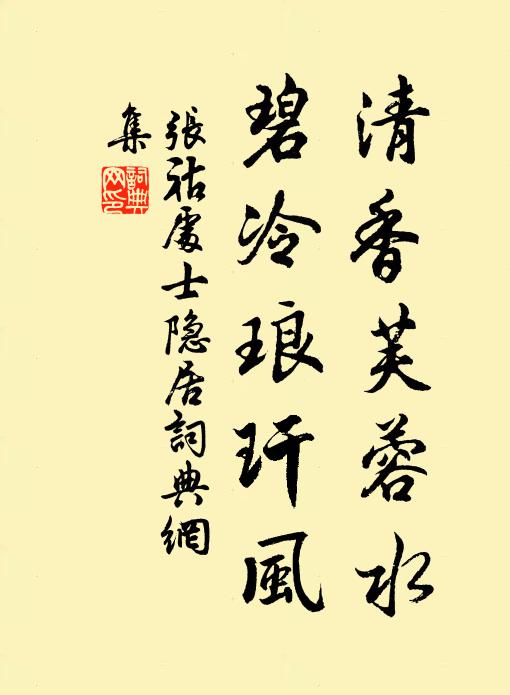 清香芙蓉水
碧冷琅玕風
張祜處士隐居詞典網
集
詞典网印